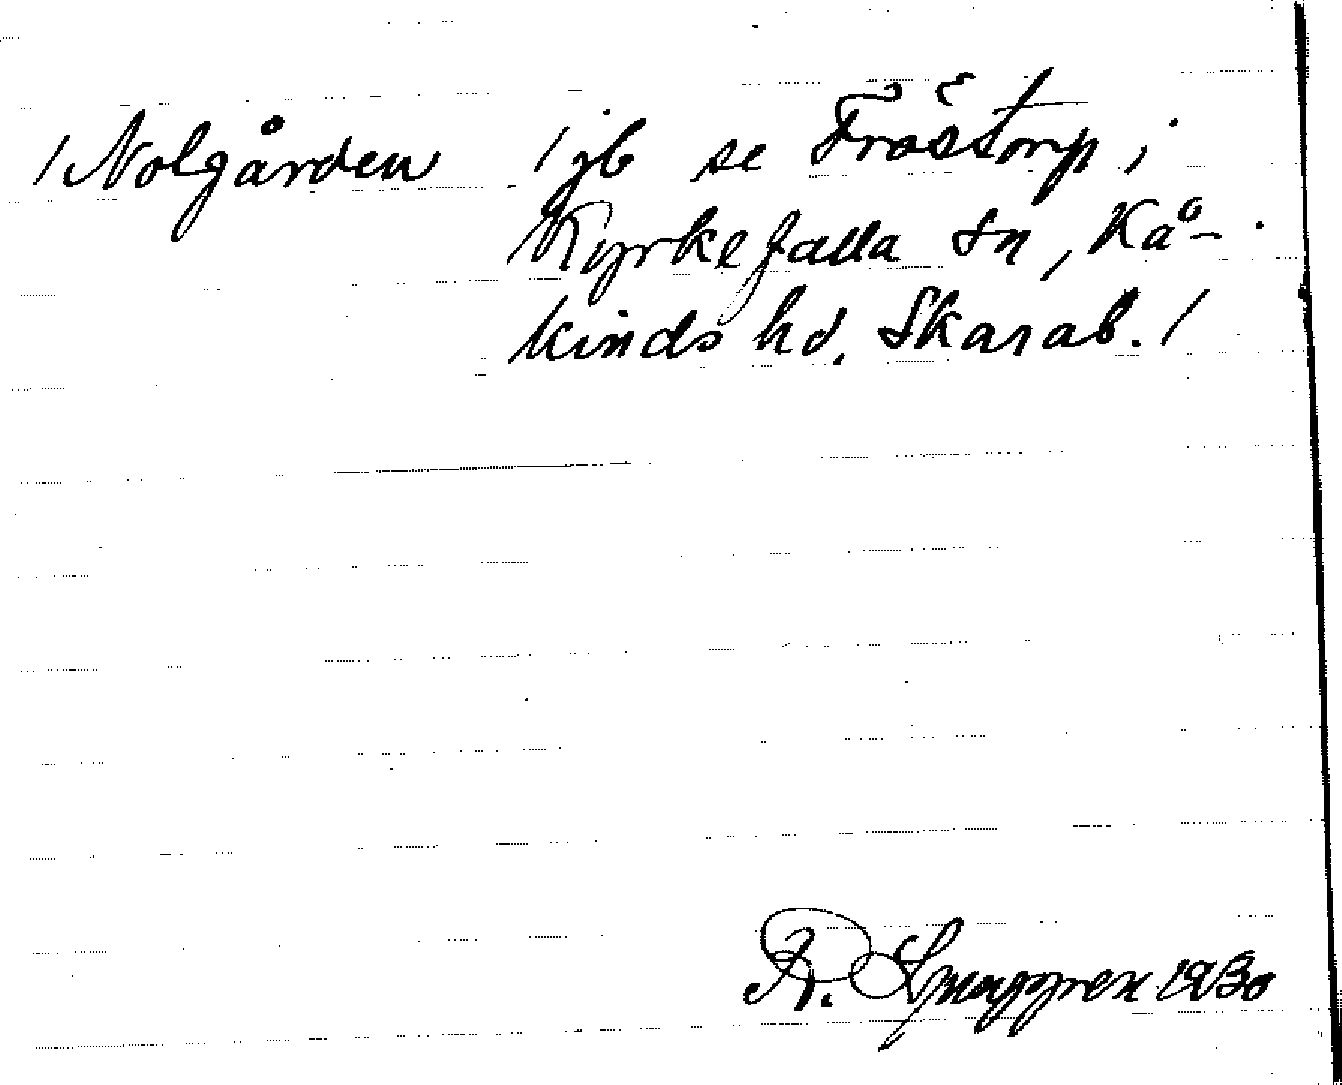 /Nolgården /jb se Fröstorp, i
Kyrkefalla sn, Kå-
kinds hd. Skarab./
R. Ljunggren 1930